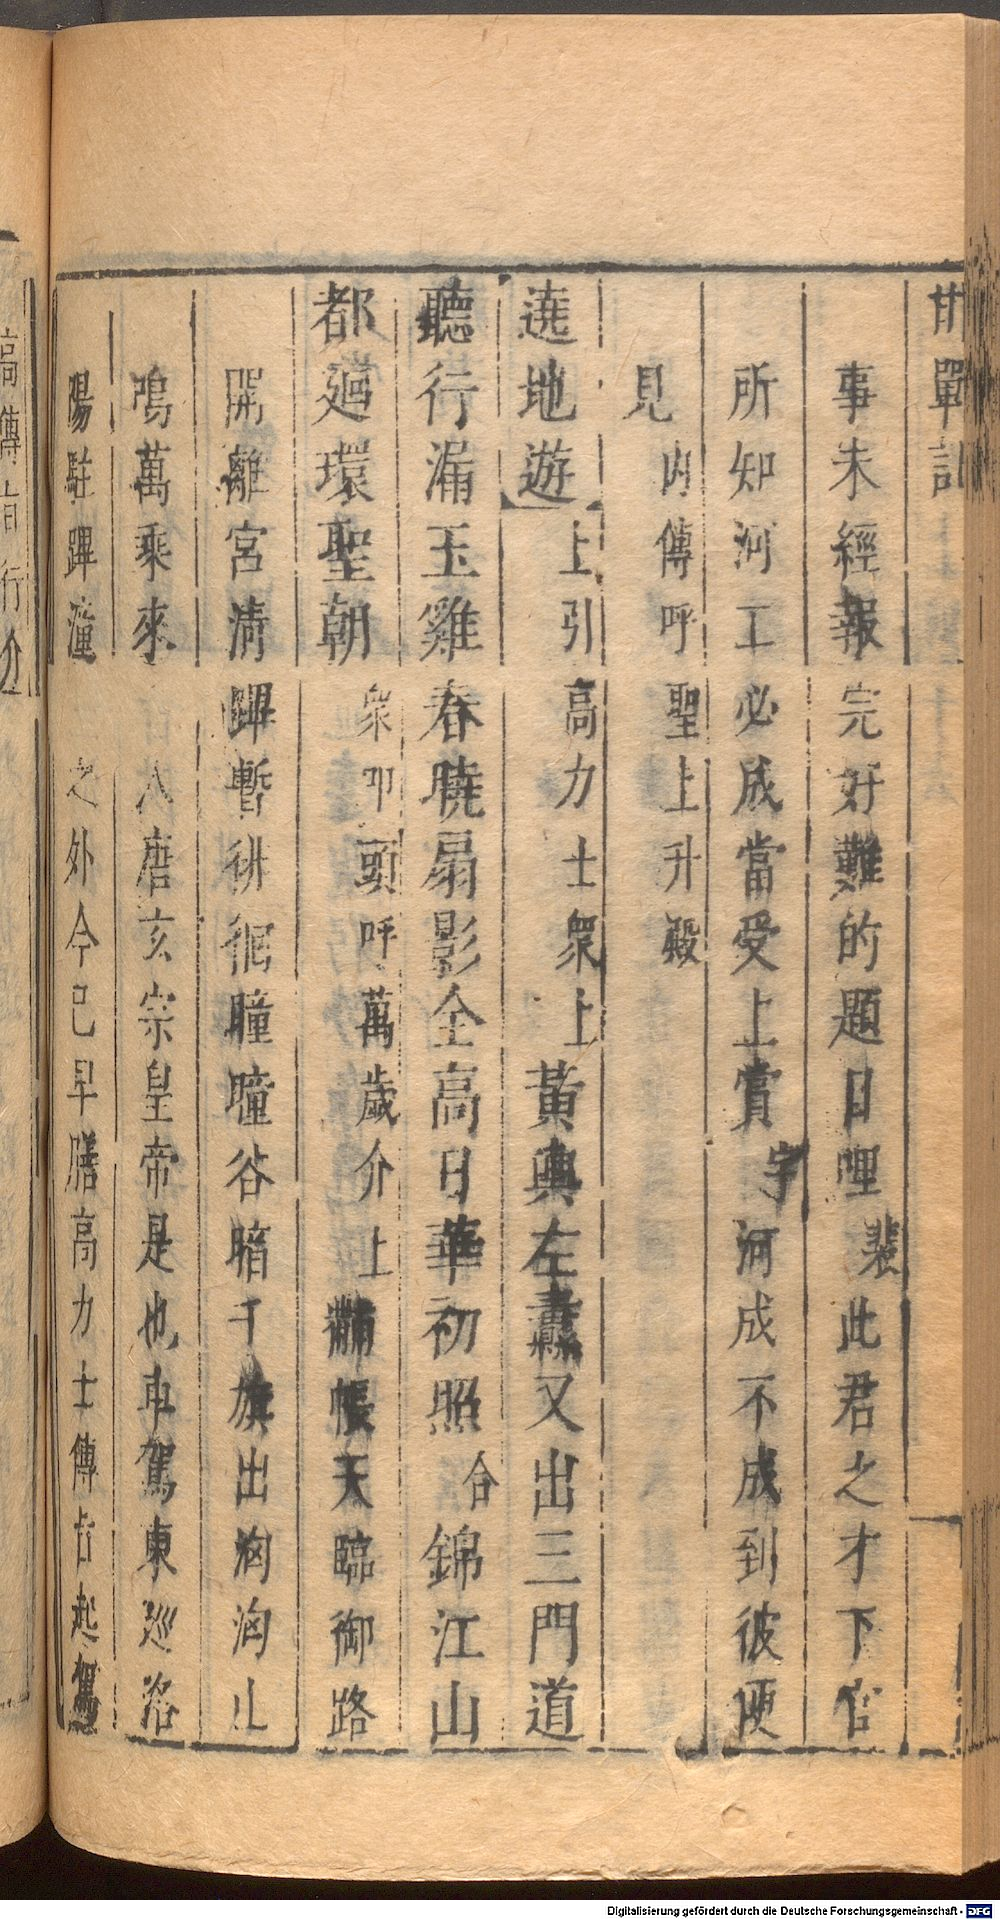 甘單記
事未經報完好難的題目哩裴此君之才下官
所知河工必成當受上賞宇河成不成到彼便
見內傳呼聖上升殿
遶地遊上引高力士衆上黃輿左纛又出三門道
聽行漏玉雞春曉扇影全高日華初照合錦江山
都廻環聖朝衆叩頭呼萬歲介上黼帳天臨御路
開離宮淸蹕暫徘徊瞳瞳谷暗千旗出洶洶山
鳴萬乘來
入唐玄宗皇帝是也車駕東巡洛
陽駐蹕潼
之外今已早膳高力士傳旨起駕
高傳旨行介
Digitalisierung gefördert durch die Deutsche Forschungsgemeinschaft - DFG